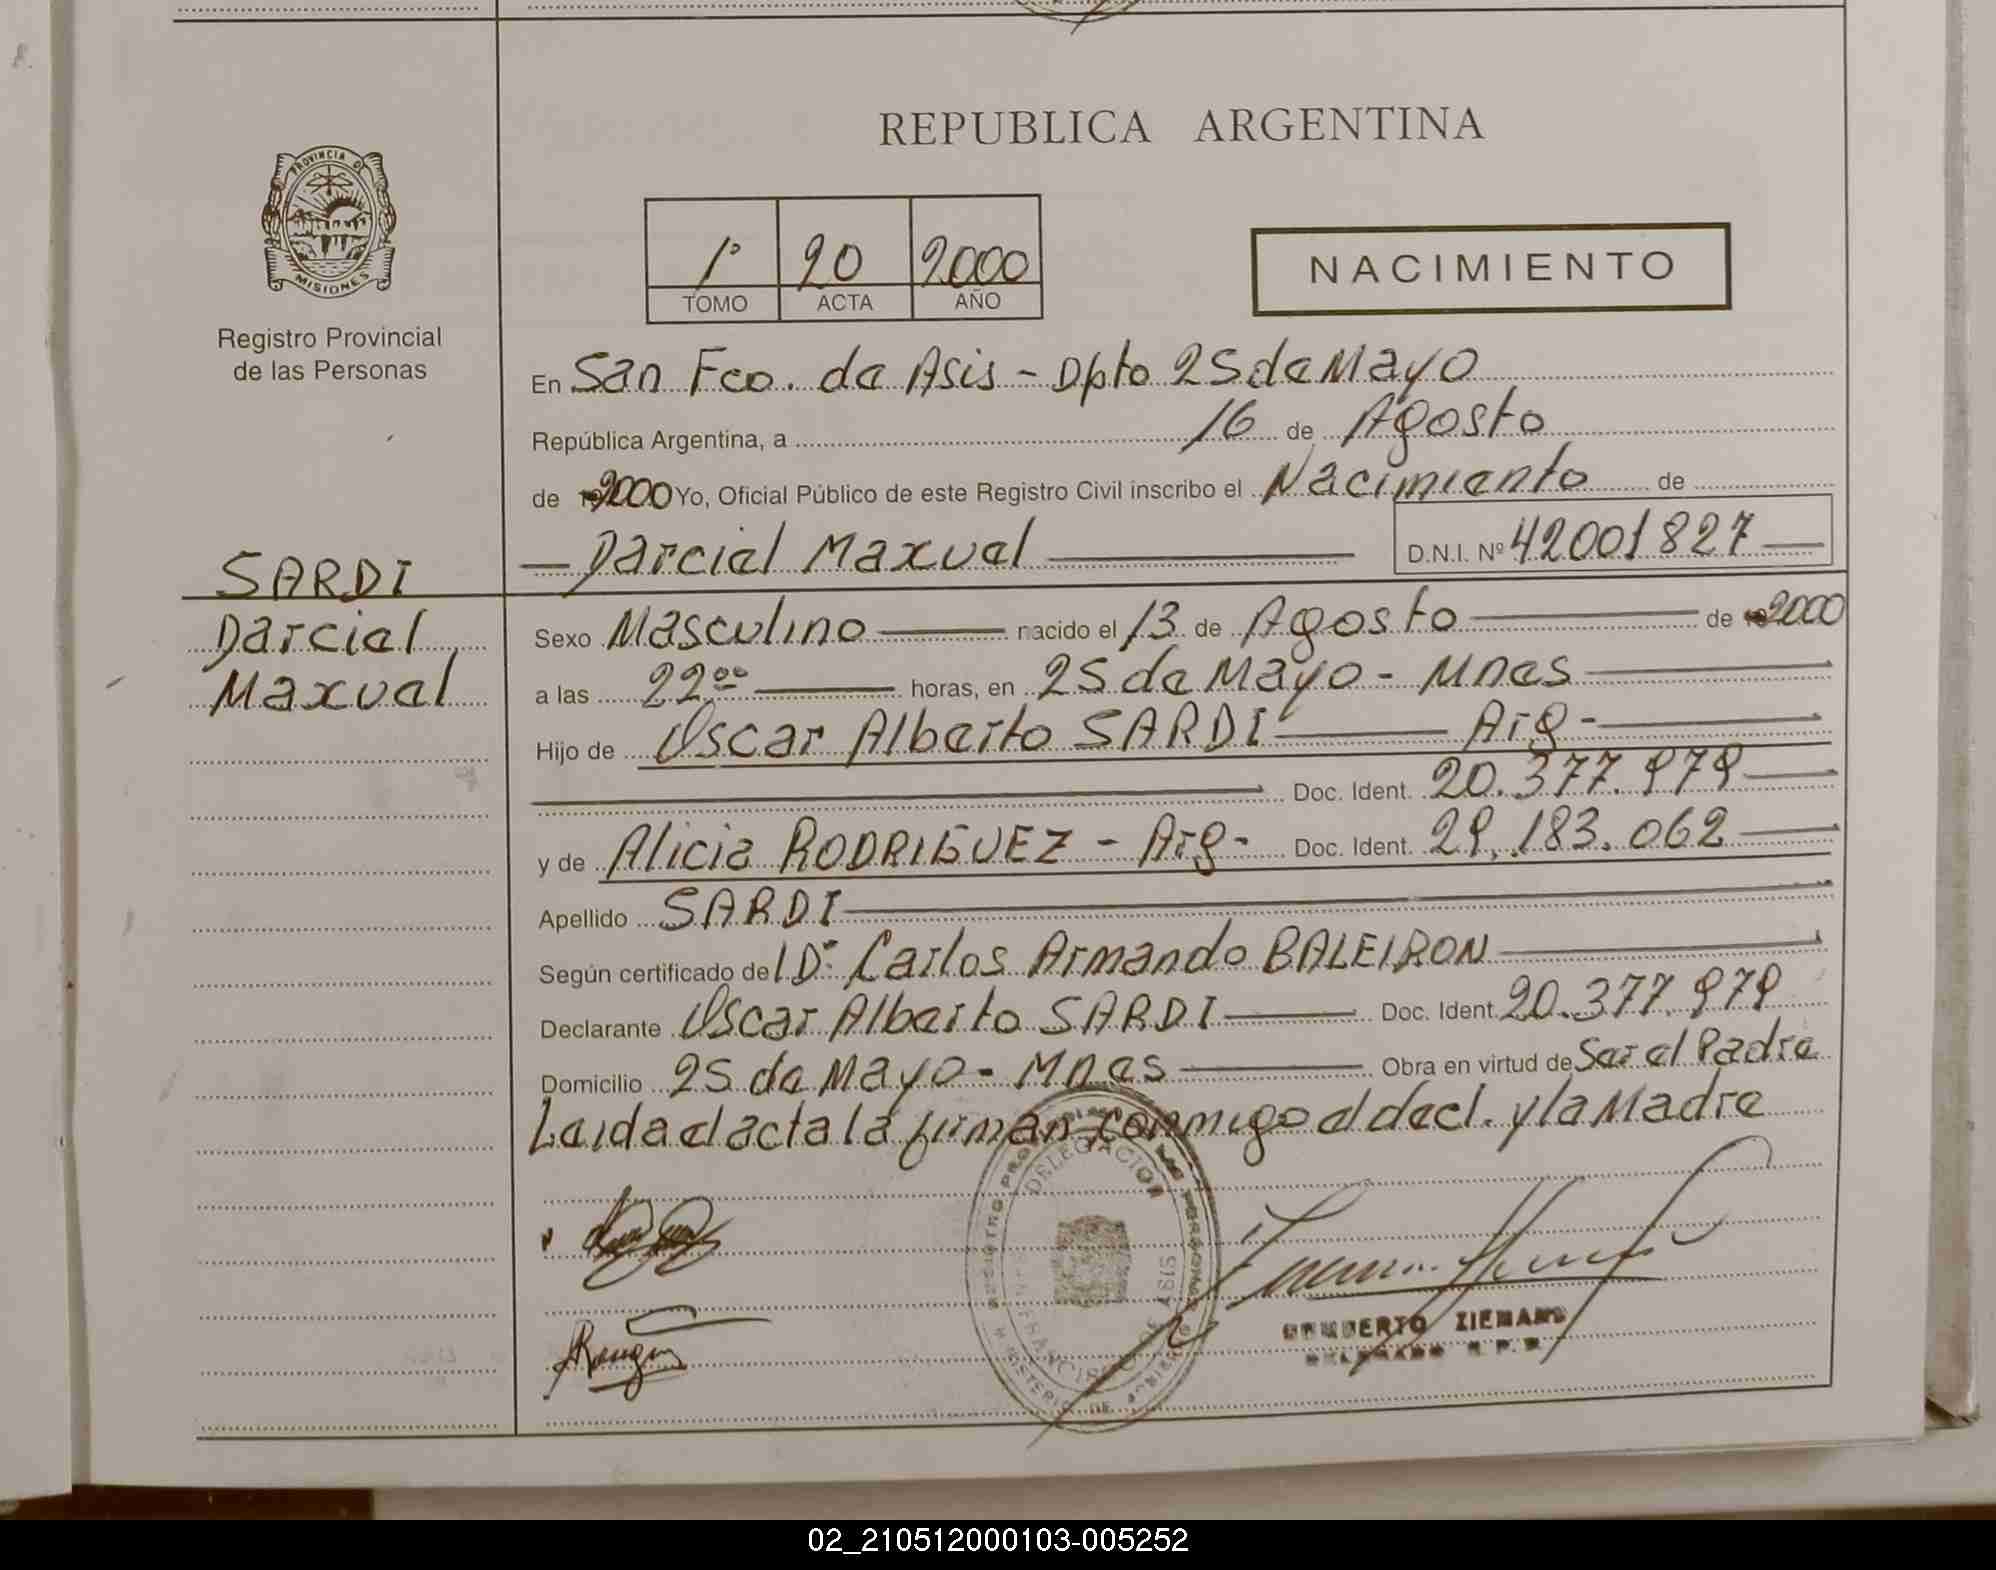 REPUBLICA ARGENTINA
PROVINCIA DE
MISIONES
Registro Provincial
de las Personas
1º 20 2000
TOMO ACTA AÑO
NACIMIENTO
En San Fco. de Asis - Dpto 25 de Mayo
República Argentina, a 16 de Agosto
de 2000 Yo, Oficial Público de este Registro Civil inscribo el Nacimiento de
Darciel Maxuel D.N.I. Nº 42001827
SARDI
Darciel
Maxuel
Sexo Masculino nacido el 13 de Agosto de 2000
a las 22ºº horas, en 25 de Mayo - Mnes
Hijo de Oscar Alberto SARDI Arg -
Doc. Ident. 20.377.979
y de Alicia RODRIGUEZ - Arg - Doc. Ident. 29.183.062
Apellido SARDI
Según certificado del Dr. Carlos Armando BALEIRON
Declarante Oscar Alberto SARDI Doc. Ident. 20.377.979
Domicilio 25 de Mayo - Mnes Obra en virtud de Ser el Padre
Leida el acta la firman conmigo el decl. y la Madre
DELEGACION
FRANCISCO DE ASIS
MINISTERIO DE
ZIEMANN
02_210512000103-005252